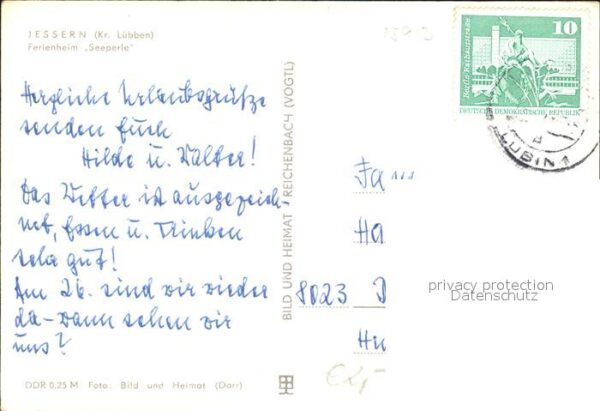 JESSERN (Kr. Lübben)
Ferienheim „Seeperle"
Herzliche Urlaubsgrüße
senden Euch
Hilde u. Walter!
Das Wetter ist ausgezeich-
net, Essen u. Trinken
sehr gut!
Am 26. sind wir wieder
da - wann sehen wir
uns?
DDR 0,25 M Foto: Bild und Heimat (Darr)
BILD UND HEIMAT REICHENBACH (VOGTL)
10
Berlin, Rathausstraße
DEUTSCHE DEMOKRATISCHE REPUBLIK
LUBIN 1
Fa
Ha
8023 D
privacy protection
Datenschutz